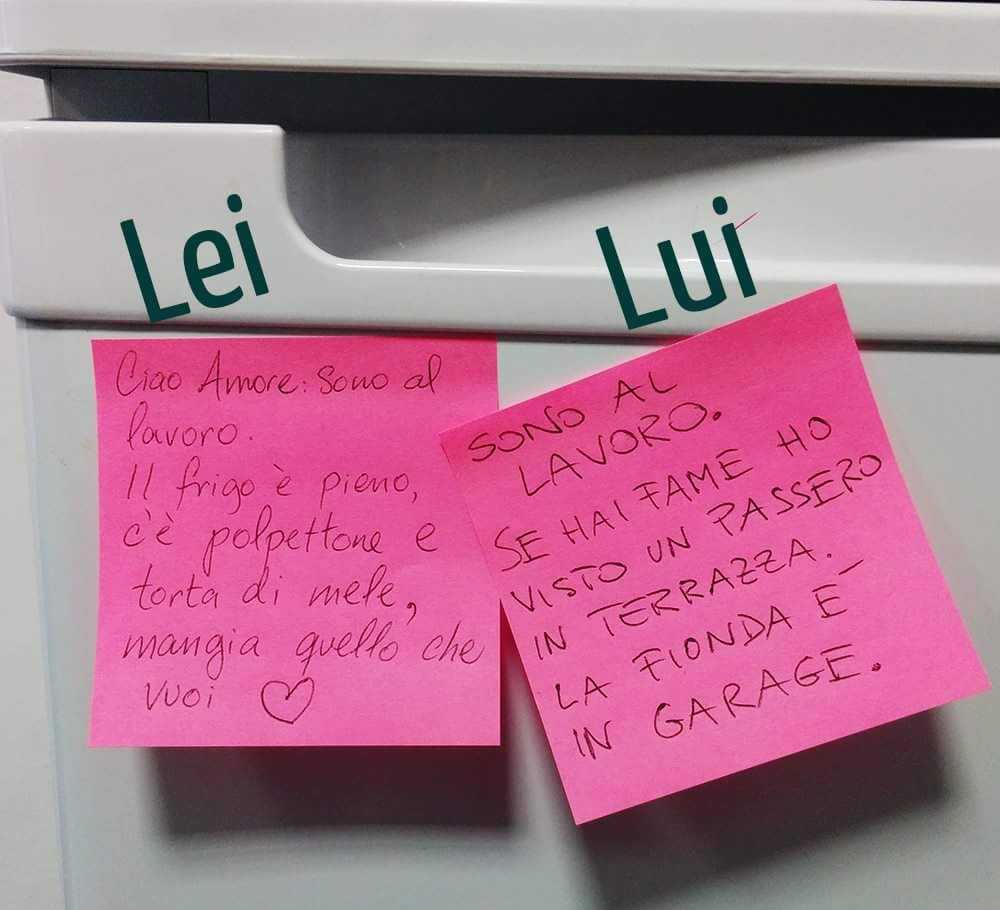 Lei
Ciao Amore: sono al
lavoro.
Il frigo è pieno,
c'è polpettone e
torta di mele,
mangia quello che
vuoi
Lui
SONO AL
LAVORO.
SE HAI FAME HO
VISTO UN PASSERO
IN TERRAZZA.
LA FIONDA È
IN GARAGE.